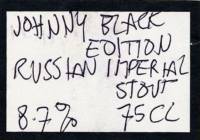 JOHNNY BLACK
EDITION
RUSSIAN IMPERIAL
STOUT
8.7% 75CL